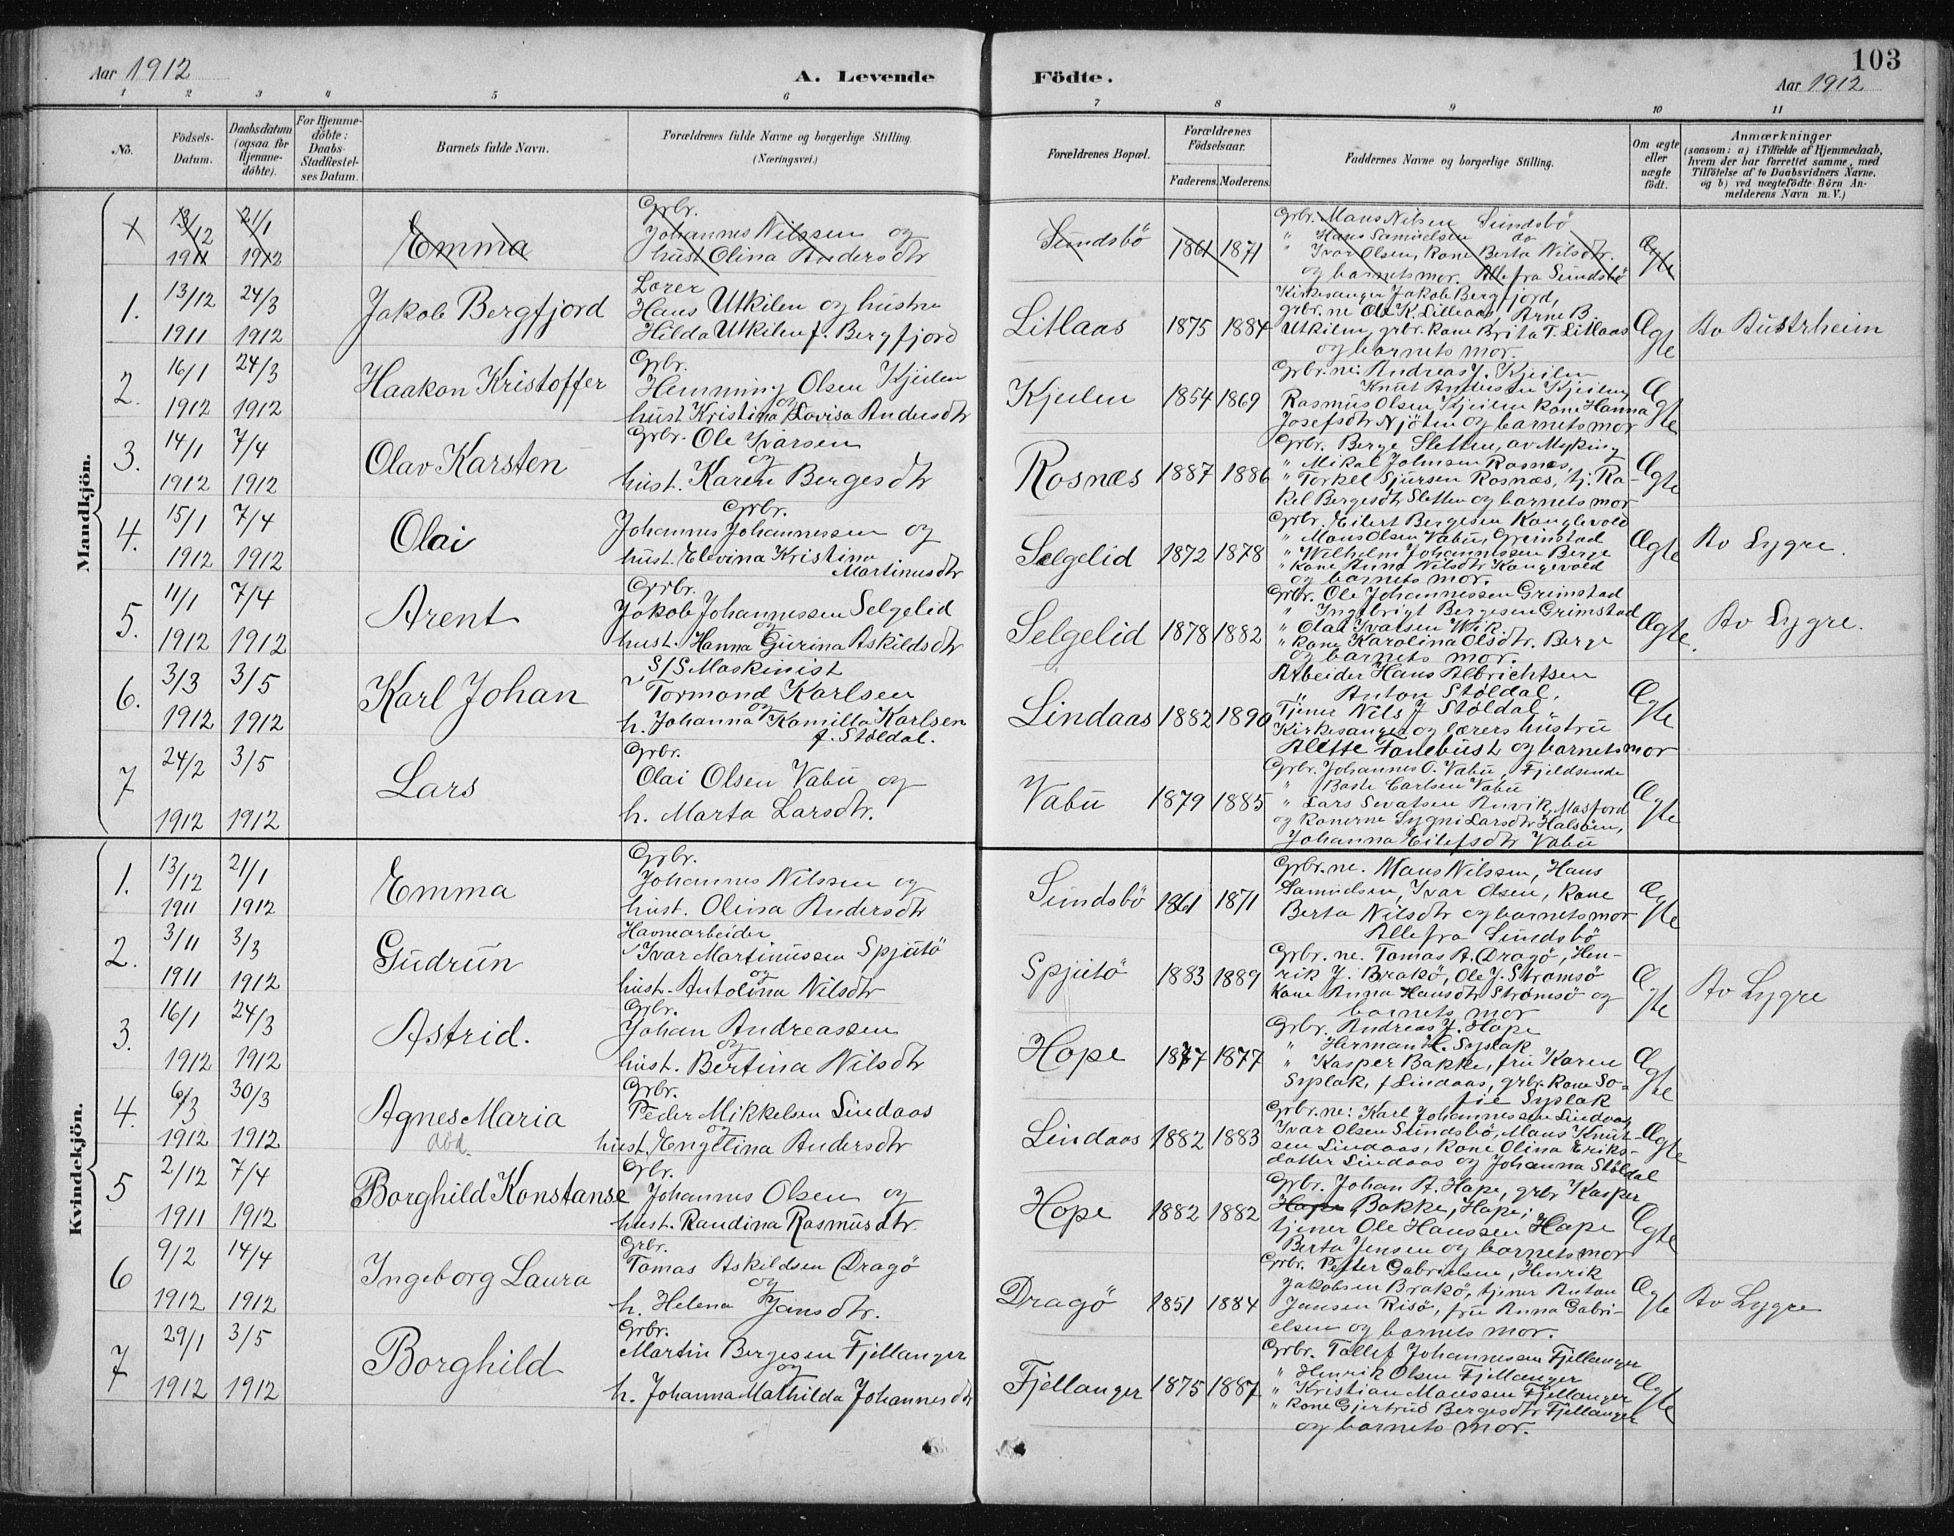 103
Aar 1912 A. Levende Födte. Aar 1912
1 2 3 4 5 6 7 8 9 10 11
No.
Födsels-
Datum.
Daabsdatum
(ogsaa for
Hjemme-
döbte).
For Hjemme-
döbte:
Daabs-
Stadfæstel-
ses Datum.
Barnets fulde Navn.
Forældrenes fulde Navne og borgerlige Stilling.
(Næringsvei.)
Forældrenes Bopæl.
Forældrenes
Födselsaar.
Faderens. Moderens.
Faddernes Navne og borgerlige Stilling.
Om ægte
eller
nægte
født.
Anmærkninger
(saasom: a) i Tilfælde af Hjemmedaab,
hvem der har forrettet samme, med
Tilföielse af to Daabsvidners Navne.
og b) ved nægtefödte Börn An-
melderens Navn m. V.)
Mandkjön.
13/12 1911
21/1 1912
Emma
Grbr.
Johannes Nilssen og
hust Olina Andersdtr
Sundsbö 1861 1871
Grbr. Mans Nilsen Sundsbö
" Hans Samuelsen do
" Ivar Olsen, Kone Berta Nilsdtr.
og barnets mor. Alle fra Sundsbö
Ægte
1. 13/12 1911
24/3 1912
Jakob Bergfjord
Lærer
Hans Utkilen og hustru
Hilda Utkilen f. Bergfjord
Litlaas 1875 1884
Kirkesanger Jakob Bergfjord,
grbr. ne Ole K. Litlaas, Arne B.
Utkilen, grbr. kone Brita T. Litlaas
og barnets mor.
Ægte
Av Austrheim
2. 16/1 1912
24/3 1912
Haakon Kristoffer
Grbr.
Hemming Olsen Kjeilen
og
hust Kristina Lovisa Andersdtr
Kjeilen 1854 1869
Grbr. ne: Andreas J. Kjeilen
Knut Andersen Kjeilen,
Rasmus Olsen Kjeilen kone Hanna
Josefsdtr Njöten og barnets mor
Ægte
3. 14/1 1912
7/4 1912
Olav Karsten
Grbr. Ole Ivarsen
og
hust. Karen Bergesdtr
Rosnæs 1887 1886
Grbr. Berge Sletten, av Myking
" Mikal Johnsen Rosnes,
" Torkel Sjursen Rosnæs, tj. Ra-
kel Bergesdtr Sletten og barnets mor
Ægte
4. 15/1 1912
7/4 1912
Olai
Grbr.
Johannes Johannessen og
hust. Elevina Kristina
Martinusdtr
Selgelid 1872 1878
Grbr. Eilert Bergesen Kanglevold
" Mons Olsen Vabu, Grimstad
" Wilhelm Johannessen Berge
" kone Anna Nilsdtr Kanglevold
og barnets mor.
Ægte
Av Lygre.
5. 11/1 1912
7/4 1912
Arent
Grbr.
Jakob Johannessen Selgelid
og
hust. Hanna Gurina Askildsdtr
Selgelid 1878 1882
Grbr. Ole Johannessen Grimstad
" Ingebrigt Bergesen Grimstad
" Olai Ivarsen Wik
" kone Karolina Olsdtr. Berge
og barnets mor.
Ægte.
Av Lygre.
6. 3/3 1912
3/5 1912
Karl Johan
S/S Maskinist
Tormond Karlsen
og
h. Johanna Kamilla Karlsen
f. Stöldal.
Lindaas 1882 1890
Arbeider Hans Albrichtsen
" Anton Stöldal,
Tjener Nils J Stöldal,
Kirkesanger og lærers hustru
Alette Tanebust og barnets mor
Ægte
7 24/2 1912
3/5 1912
Lars
Grbr.
Olai Olsen Vabu og
h. Marta Larsdtr.
Vabu 1879 1885
Grbr. Johannes O. Vabu, Fjeldsende
" Baste Carlsen Vabu
" Lars Sevatsen Anvik, Masfjord
og Konerne Sygni Larsdtr Halsöen,
Johanna Eilefsdtr Vabu
Ægte
Kvindekjön.
1. 13/12 1911
21/1 1912
Emma
Grbr.
Johannes Nilssen og
hust. Olina Andersdtr
Sundsbö 1861 1871
Grbr. ne. Mans Nilssen, Hans
Samuelsen, Ivar Olsen, kone
Berta Nilsdtr og barnets mor
Alle fra Sundsbö
Ægte
2. 3/11 1911
3/3 1912
Gudrun
Havnearbeider
Ivar Martinussen Spjutö
og
hust. Antolina Nilsdtr
Spjutö 1883 1889
Grbr. ne. Tomas A. Dragö, Hen-
rik J. Brakö, Ole J. Stromsö
Kone Anna Hansdtr Stromsö og
barnets mor
Ægte
Av Lygre
3. 16/1 1912
24/3 1912
Astrid.
Grbr.
Johan Andreassen
og
hust. Bertina Nilsdtr
Hope 1877 1877
Grbr. Andreas J. Hope
" Herman H. Syslak
" Kasper Bakke, fru Karen
Syslak, f Lindaas, grbr. kone So-
fie Syslak
Ægte
4. 6/3 1912
30/3 1912
Agnes Maria
död.
Grbr.
Peder Mikkelsen Lindaas
og
hust. Engelina Andersdtr
Lindaas 1882 1883
Grbr. ne: Karl Johannessen Lindaas
Ivar Olsen Sundsbö, Mans Knut-
sen Lindaas, Kone Olina Eriks-
datter Lindaas og Johanna Stöldal
Ægte
5 2/12 1911
7/4 1912
Borghild Konstanse
Grbr.
Johannes Olsen og
hust. Randina Rasmusdtr.
Hope 1882 1882
Grbr. Johan A. Hope, grbr Kasper
Hope Bakke, Hope;
tjener Ole Hanssen Hope
Berta Jensen og barnets mor
Ægte
6 9/2 1912
14/4 1912
Ingeborg Laura
Grbr.
Tomas Askildsen Dragö
og
h. Helena Jansdtr.
Dragö 1851 1884
Grbr. Petter Gabrielsen, Henrik
Jakobsen Brakö, tjener Anton
Jansen Risö, fru Anna Gabri-
elsen og barnets mor.
Ægte
Av Lygre
7 29/1 1912
3/5 1912
Borghild
Grbr.
Martin Bergesen Fjellanger
og
h. Johanna Mathilda Johannesdtr
Fjellanger 1875 1887
Grbr. Tollef Johannessen Fjellanger
" Henrik Olsen Fjellanger
" Kristian Monssen Fjellanger
" kone Gjertrud Bergesdtr Fjellanger
og barnets mor.
Ægte